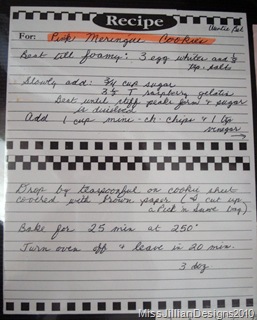 Recipe
Auntie Bel
For: Pink Meringue Cookies
Beat till foamy: 3 egg whites and 1/8
tsp. salt
Slowly add: 3/4 cup sugar
3 1/2 T raspberry gelatin
Beat until stiff peaks form & sugar
is dissolved
Add 1 cup mine-ch. chips & 1 tsp
vinegar →
Drop by teaspoonful on cookie sheet
covered with brown paper (& cut up
a Pick 'n Save bag)
Bake for 25 min at 250°
Turn oven off & leave in 20 min.
3 doz
MissJillianDesigns2010